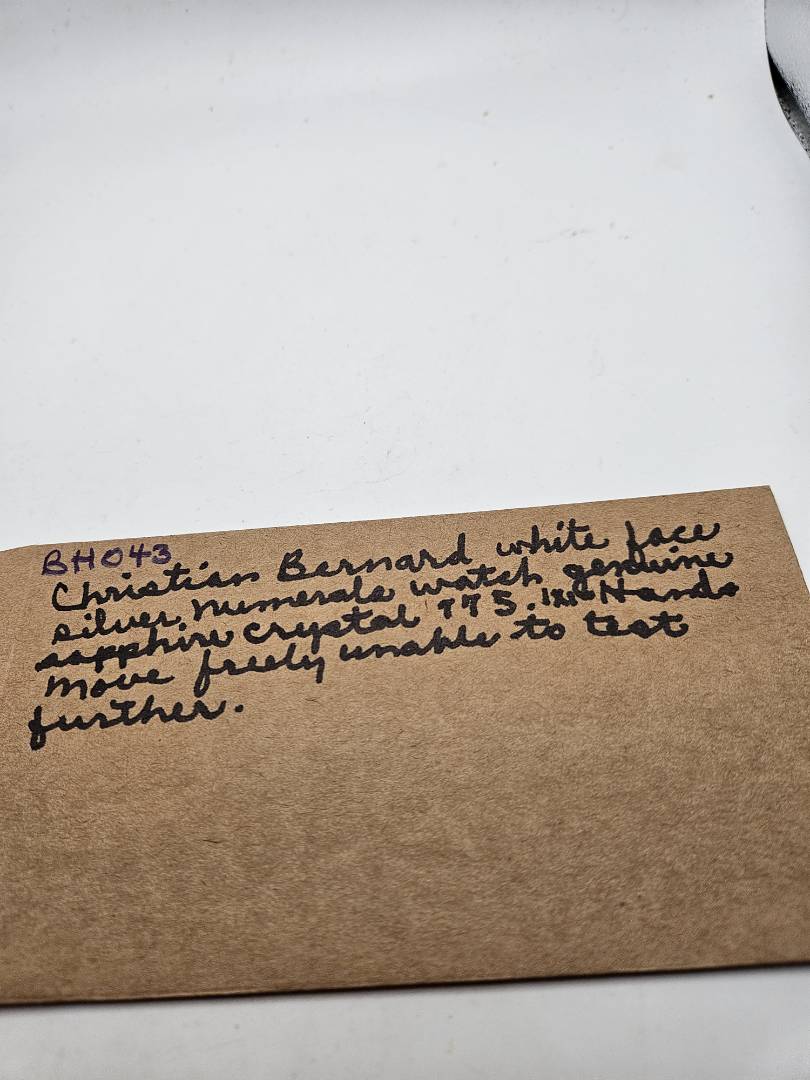 BH043
Christian Bernard white face
silver numerals watch genuine
sapphire crystal 775. Hands
move freely unable to test
further.